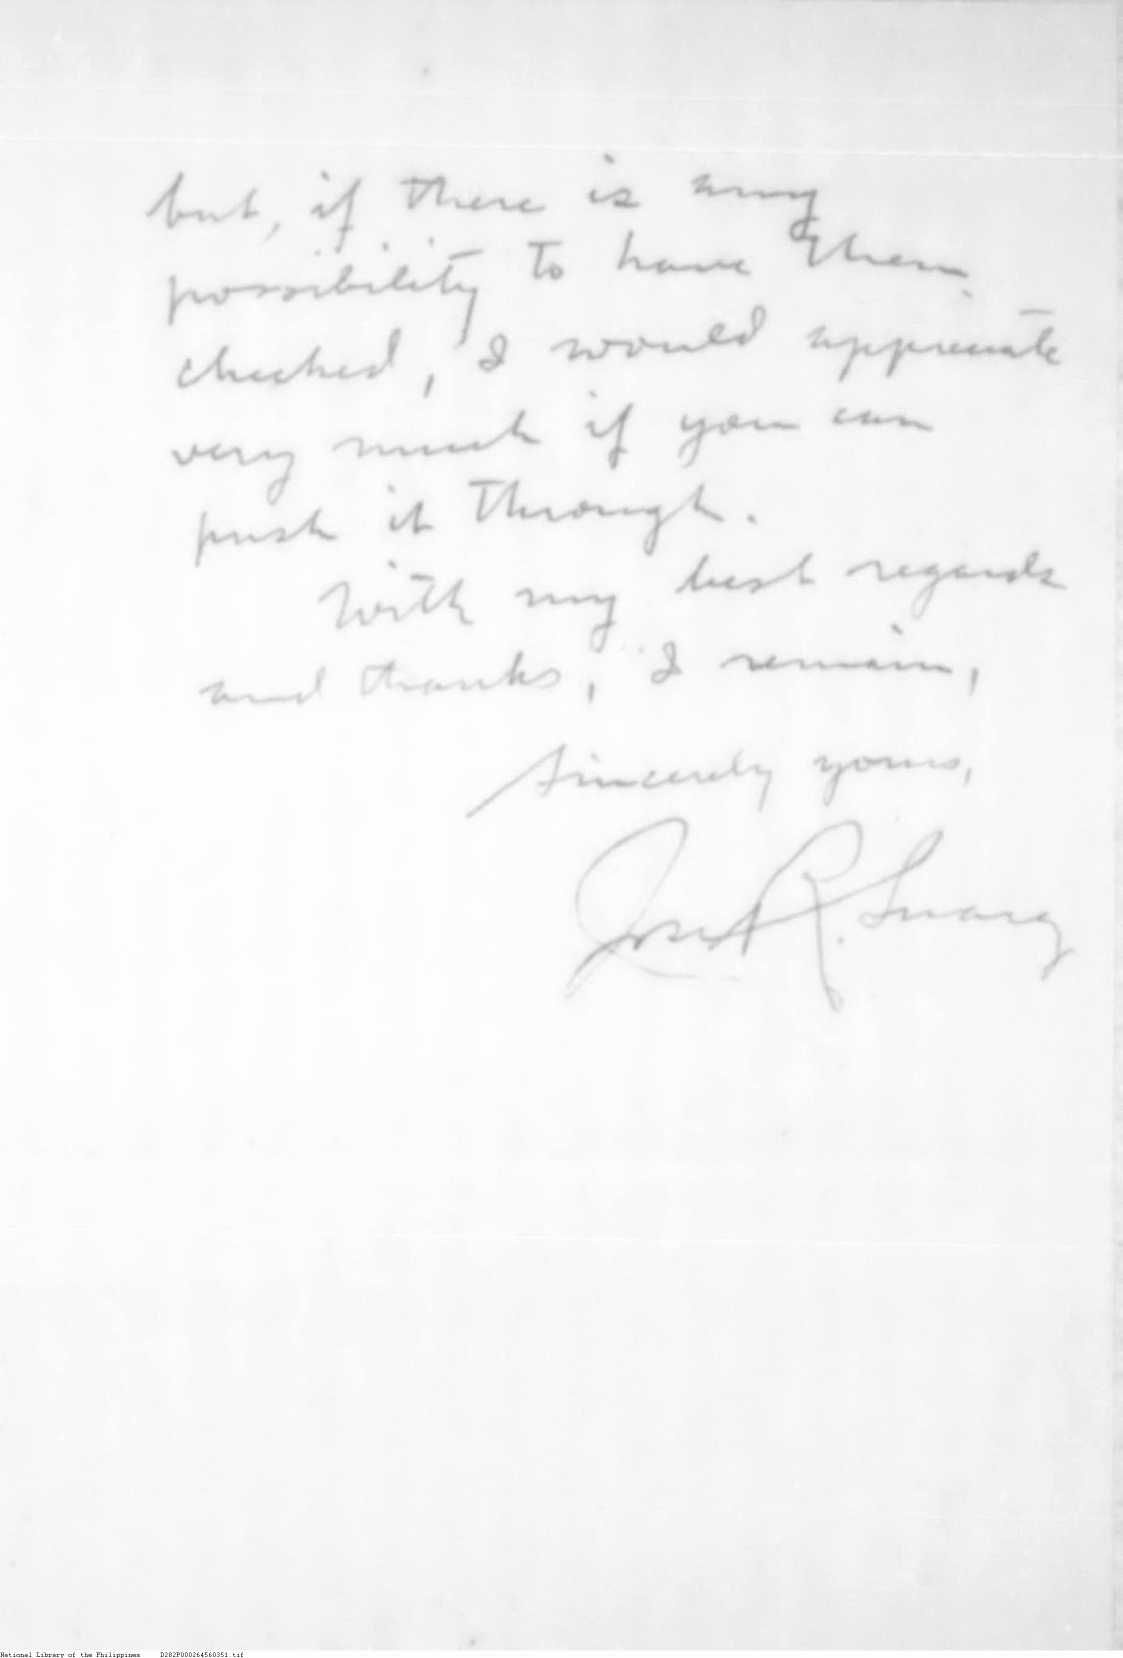 but, if there is any
possibility to have them
checked, I would appreciate
very much if you can
push it through.
With my best regards
and thanks, I remain,
Sincerely yours,
José R.
National Library of the Philippines D282P000264560351.tif